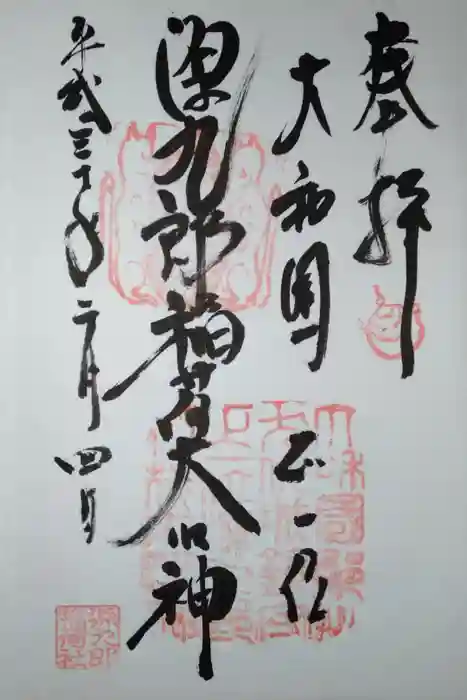 奉拝
大和国 正一位
源九郎稲荷大明神
平成三十年二月四日
源九郎
稲荷社